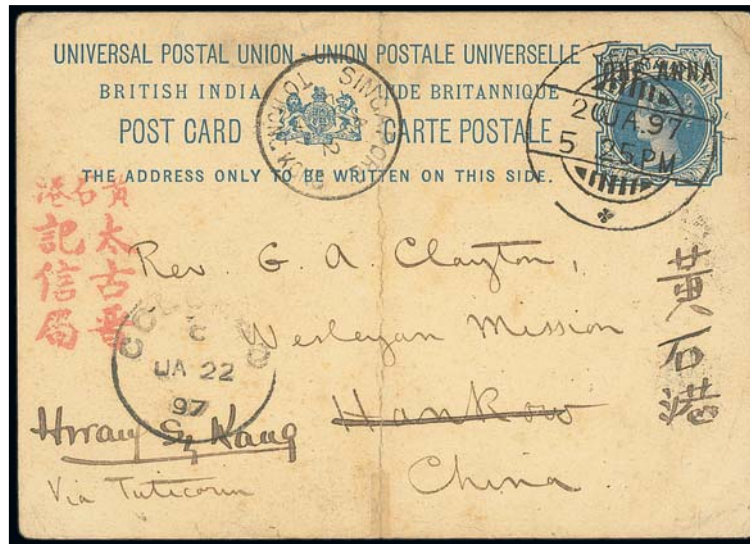 UNIVERSAL POSTAL UNION - UNION POSTALE UNIVERSELLE
BRITISH INDIA INDE BRITANNIQUE
POST CARD CARTE POSTALE
THE ADDRESS ONLY TO BE WRITTEN ON THIS SIDE.
ONE ANNA
20 JA. 97
5 25 PM
SINGAPORE
TO HONG KONG
黃石港
太古晉
記信局
Rev. G. A. Clayton,
Wesleyan Mission
Hankow
China
C
JA 22
97
Hwang Sz Kang
Via Tuticorin
黃石港